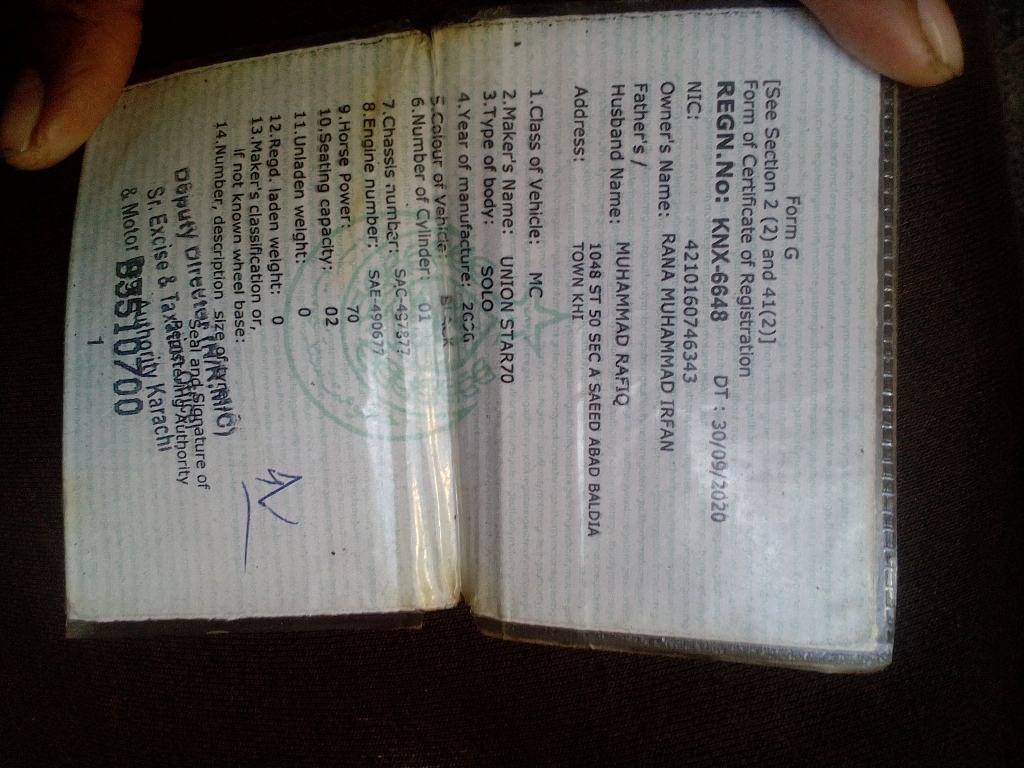 Form G
[See Section 2 (2) and 41(2)]
Form of Certificate of Registration
REGN.No: KNX-6648 DT : 30/09/2020
NIC: 4210160746343
Owner's Name: RANA MUHAMMAD IRFAN
Father's /
Husband Name: MUHAMMAD RAFIQ
Address: 1048 ST 50 SEC A SAEED ABAD BALDIA
TOWN KHI
1.Class of Vehicle: MC
2.Maker's Name: UNION STAR70
3.Type of body: SOLO
4.Year of manufacture:
5.Colour of Vehicle:
6.Number of Cylinder: 01
7.Chassis number:
8.Engine number: SAE-490677
9.Horse Power: 70
10.Seating capacity: 02
11.Unladen weight: 0
12.Regd. laden weight: 0
13.Maker's classification or,
if not known wheel base:
14.Number, description size of
Seal and Signature of
Registering Authority
Deputy Director
Sr. Excise & Taxation
& Motor Authority Karachi
B3510700
1